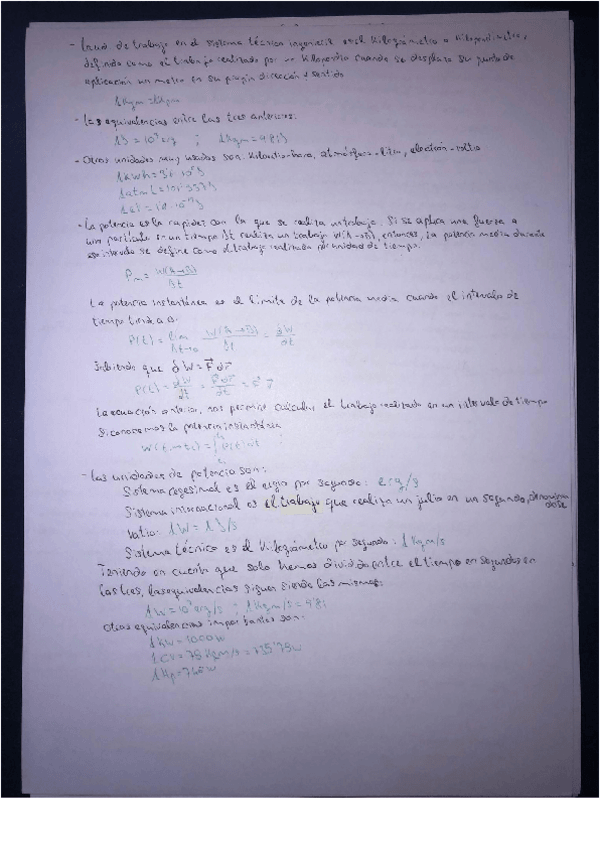 - La ud. de trabajo en el sistema técnico ingenieril es el Kilográmetro o Kilopondímetro,
definido como el trabajo realizado por un Kilopondio cuando se desplaza su punto de
aplicación un metro en su propia dirección y sentido
1Kgm = 1Kpm
- Las equivalencias entre las tres anteriores:
1J = 10⁷ erg ; 1Kgm = 9'81J
- Otras unidades muy usadas son: Kilowatio-hora, atmósfera-litro, electrón-voltio
1kWh = 3'6·10⁶J
1atm·L =
1eV =
- La potencia es la rapidez con la que se realiza un trabajo. Si se aplica una fuerza a
una partícula en un tiempo Δt realiza un trabajo W(A→B), entonces, la potencia media durante
ese intervalo se define como el trabajo realizado por unidad de tiempo.
Pm = W(A→B) / Δt
La potencia instantánea es el límite de la potencia media cuando el intervalo de
tiempo tiende a 0.
P(t) = lim Δt→0 W(A→B) / Δt = dW / dt
Sabiendo que dW = F⃗ dr⃗
P(t) = dW / dt = F⃗ dr⃗ / dt = F⃗ v⃗
La ecuación anterior, nos permite calcular el trabajo realizado en un intervalo de tiempo
si conocemos la potencia instantánea
- Las unidades de potencia son:
Sistema cegesimal es el ergio por segundo: erg/s
Sistema internacional es el trabajo que realiza un julio en un segundo, denominándose
vatio: 1W = 1J/s
Sistema técnico es el Kilográmetro por segundo: 1Kgm/s
Teniendo en cuenta que solo hemos dividido entre el tiempo en segundos en
las tres, las equivalencias siguen siendo las mismas:
1W = 10⁷ erg/s ; 1Kgm/s = 9'81
Otras equivalencias importantes son:
1kW = 1000W
1CV = 75Kgm/s = 735'75W
1Hp = 746W